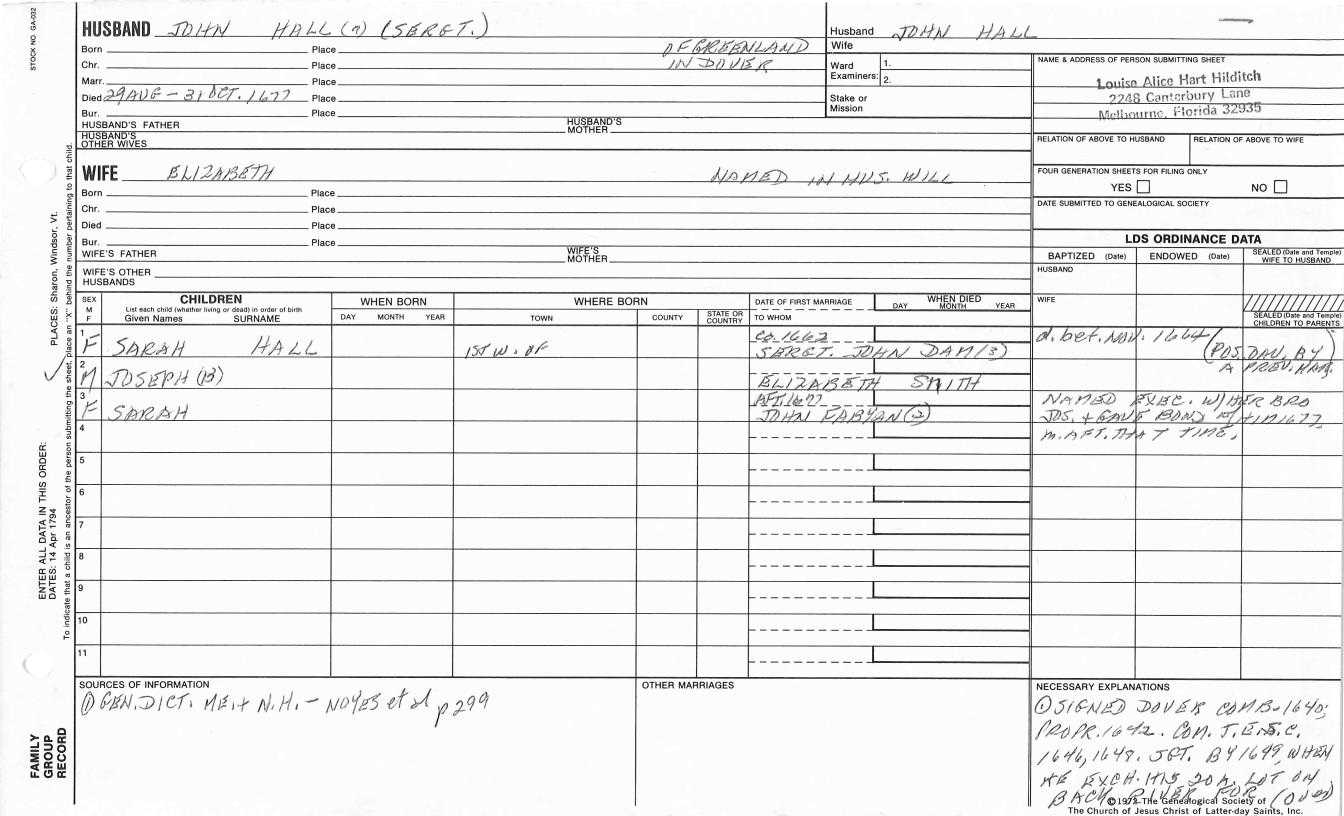 STOCK NO. GA-032
HUSBAND JOHN HALL (7) (SERGT.)
Born Place OF GREENLAND
Chr. Place IN DOVER
Marr. Place
Died 29 AUG - 31 OCT. 1677 Place
Bur. Place
HUSBAND'S FATHER HUSBAND'S MOTHER
HUSBAND'S OTHER WIVES
WIFE ELIZABETH NAMED IN HUS. WILL
Born Place
Chr. Place
Died Place
Bur. Place
WIFE'S FATHER WIFE'S MOTHER
WIFE'S OTHER HUSBANDS
Husband JOHN HALL
Wife
Ward Examiners: 1.
2.
Stake or Mission
NAME & ADDRESS OF PERSON SUBMITTING SHEET
Louise Alice Hart Hilditch
2248 Canterbury Lane
Melbourne, Florida 32935
RELATION OF ABOVE TO HUSBAND RELATION OF ABOVE TO WIFE
FOUR GENERATION SHEETS FOR FILING ONLY
YES NO
DATE SUBMITTED TO GENEALOGICAL SOCIETY
LDS ORDINANCE DATA
BAPTIZED (Date) ENDOWED (Date) SEALED (Date and Temple) WIFE TO HUSBAND
HUSBAND
WIFE
SEALED (Date and Temple) CHILDREN TO PARENTS
SEX M F
CHILDREN
List each child (whether living or dead) in order of birth
Given Names SURNAME
WHEN BORN
DAY MONTH YEAR
WHERE BORN
TOWN COUNTY STATE OR COUNTRY
DATE OF FIRST MARRIAGE
TO WHOM
WHEN DIED
DAY MONTH YEAR
1 Ca 1662 d. bet. Nov. 1664
F SARAH HALL 1ST W. OF SERGT. JOHN DAM (3) (POS. DAU. BY A PREV. MAR.)
2
M JOSEPH (13) ELIZABETH SMITH
3 AFT. 1677 NAMED EXEC. W/ HER BRO
F SARAH JOHN FABYAN (2) JOS. + GAVE BOND 1677
4 m. AFT. THAT TIME.
5
6
7
8
9
10
11
SOURCES OF INFORMATION
① GEN. DICT. ME. + N.H. - NOYES et al p 299
OTHER MARRIAGES
NECESSARY EXPLANATIONS
① SIGNED DOVER COMB. 1640;
PROPR. 1642. COM. T. ENS. C.
1646, 1648. SGT. BY 1649, WHEN
HE EXCH. HIS 20 A. LOT ON
BACK RIVER FOR (over)
©1972 The Genealogical Society of
The Church of Jesus Christ of Latter-day Saints, Inc.
PLACES: Sharon, Windsor, Vt.
ENTER ALL DATA IN THIS ORDER:
DATES: 14 Apr 1794
To indicate that a child is an ancestor of the person submitting the sheet, place an "X" behind the number pertaining to that child.
FAMILY GROUP RECORD